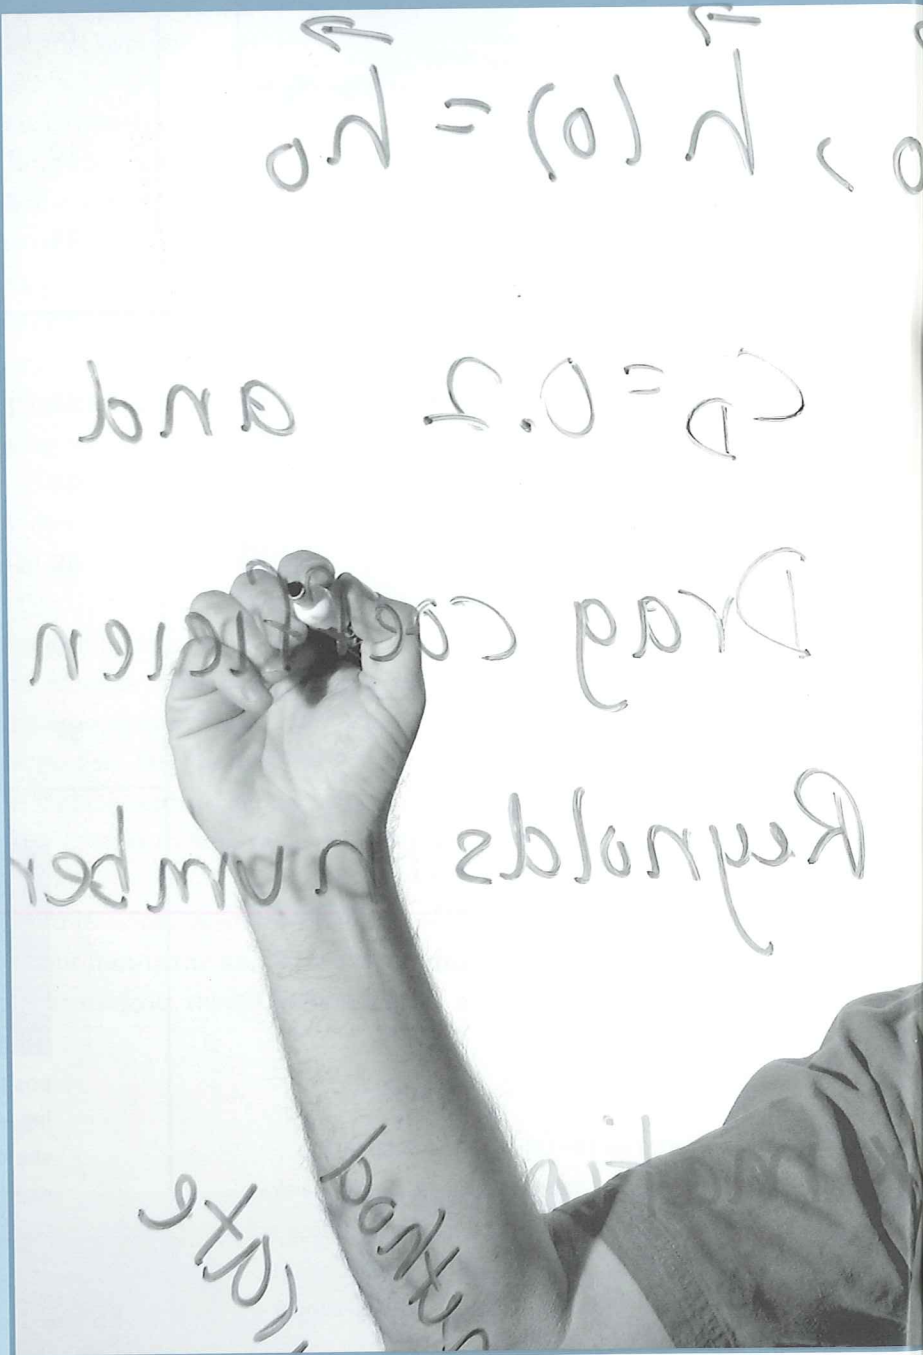 0, h⃗(0) = h⃗₀
C_D = 0.2 and
Drag coefficien
Reynolds number
method
rate